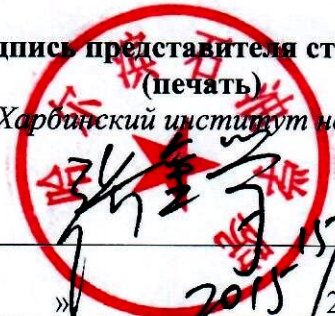 дпись представителя ст
(печать)
Харбинский институт не
哈尔滨石油学院
15
» 2015 2